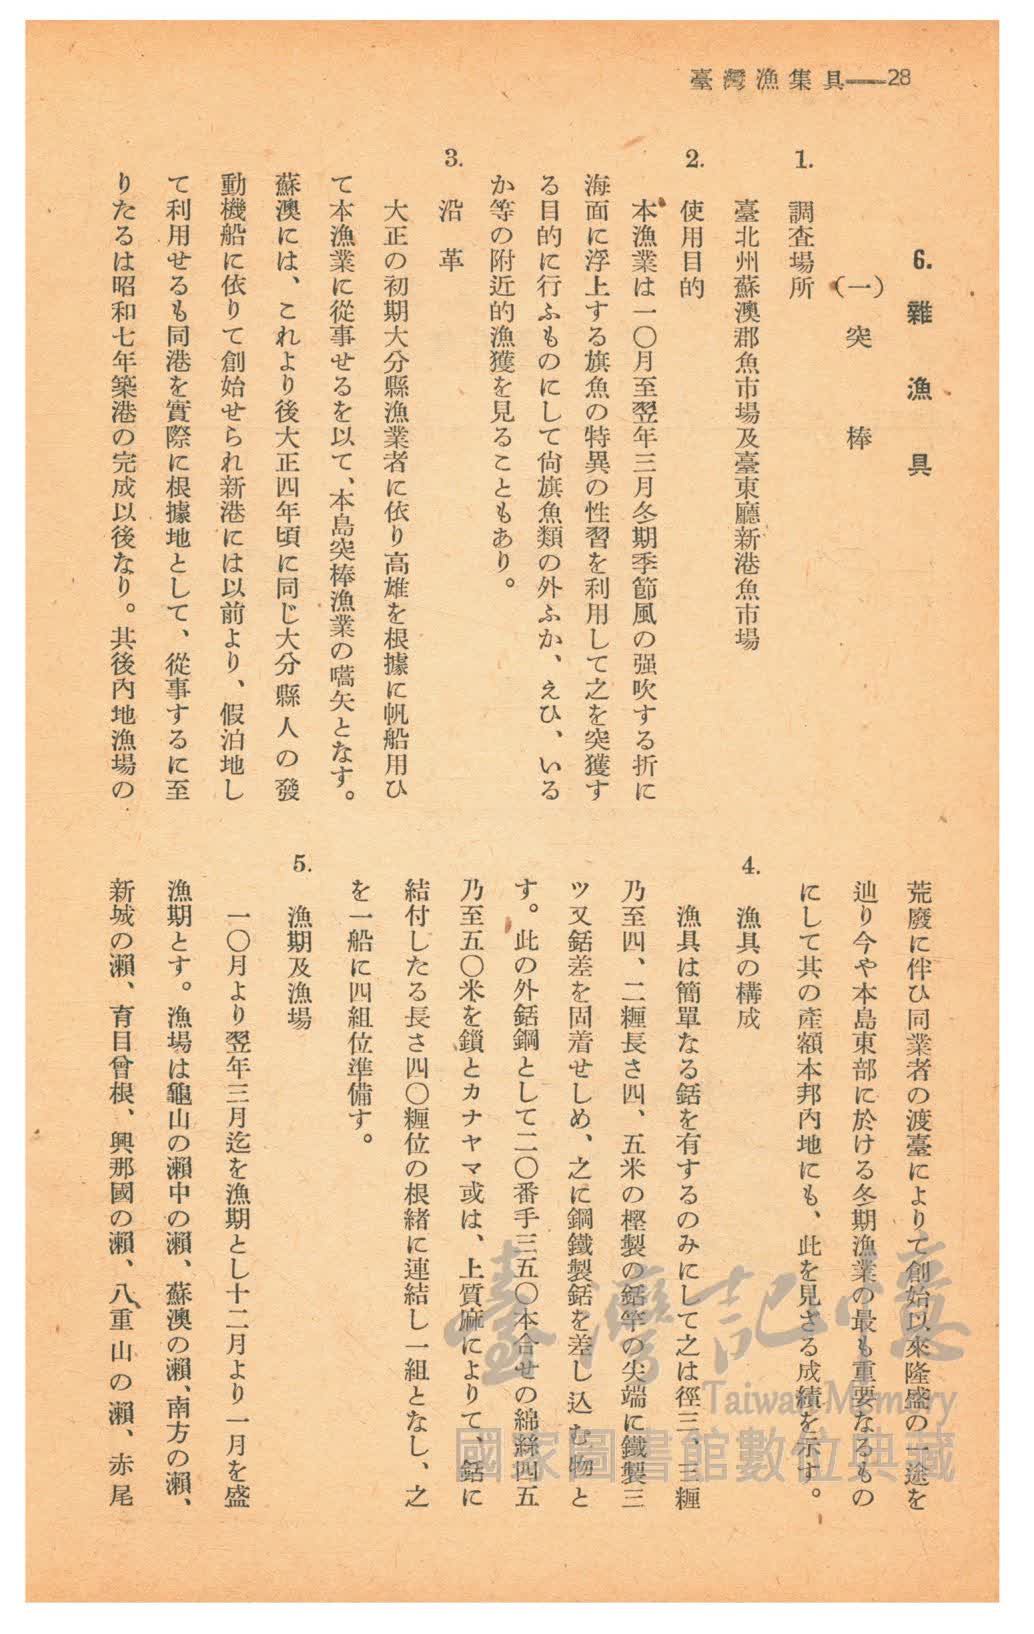 臺灣漁集具——28
6. 雜漁具
(一) 突棒
1. 調査場所
臺北州蘇澳郡魚市場及臺東廳新港魚市場
2. 使用目的
本漁業は一〇月至翌年三月冬期季節風の强吹する折に
海面に浮上する旗魚の特異の性習を利用して之を突獲す
る目的に行ふものにして尙旗魚類の外ふか、えひ、いる
か等の附近的漁獲を見ることもあり。
3. 沿革
大正の初期大分縣漁業者に依り高雄を根據に帆船用ひ
て本漁業に從事せるを以て、本島突棒漁業の嚆矢となす。
蘇澳には、これより後大正四年頃に同じ大分縣人の發
動機船に依りて創始せられ新港には以前より、假泊地し
て利用せるも同港を實際に根據地として、從事するに至
りたるは昭和七年築港の完成以後なり。其後內地漁場の
荒廢に伴ひ同業者の渡臺によりて創始以來隆盛の一途を
辿り今や本島東部に於ける冬期漁業の最も重要なるもの
にして其の產額本邦內地にも、此を見さる成績を示す。
4. 漁具の構成
漁具は簡單なる銛を有するのみにして之は徑三、三糎
乃至四、二糎長さ四、五米の樫製の銛竿の尖端に鐵製三
ツ又銛差を固着せしめ、之に鋼鐵製銛を差し込む物と
す。此の外銛鋼として二〇番手三五〇本合せの綿絲四五
乃至五〇米を鎖とカナヤマ或は、上質麻によりて、銛に
結付したる長さ四〇糎位の根緒に連結し一組となし、之
を一船に四組位準備す。
5. 漁期及漁場
一〇月より翌年三月迄を漁期とし十二月より一月を盛
漁期とす。漁場は龜山の瀨中の瀨、蘇澳の瀨、南方の瀨、
新城の瀨、育目曾根、興那國の瀨、八重山の瀨、赤尾
臺灣記憶
Taiwan Memory
國家圖書館數位典藏